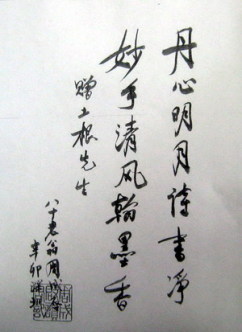 丹心明月诗书净
妙手清风翰墨香
赠土根先生
八十老翁周
辛卯